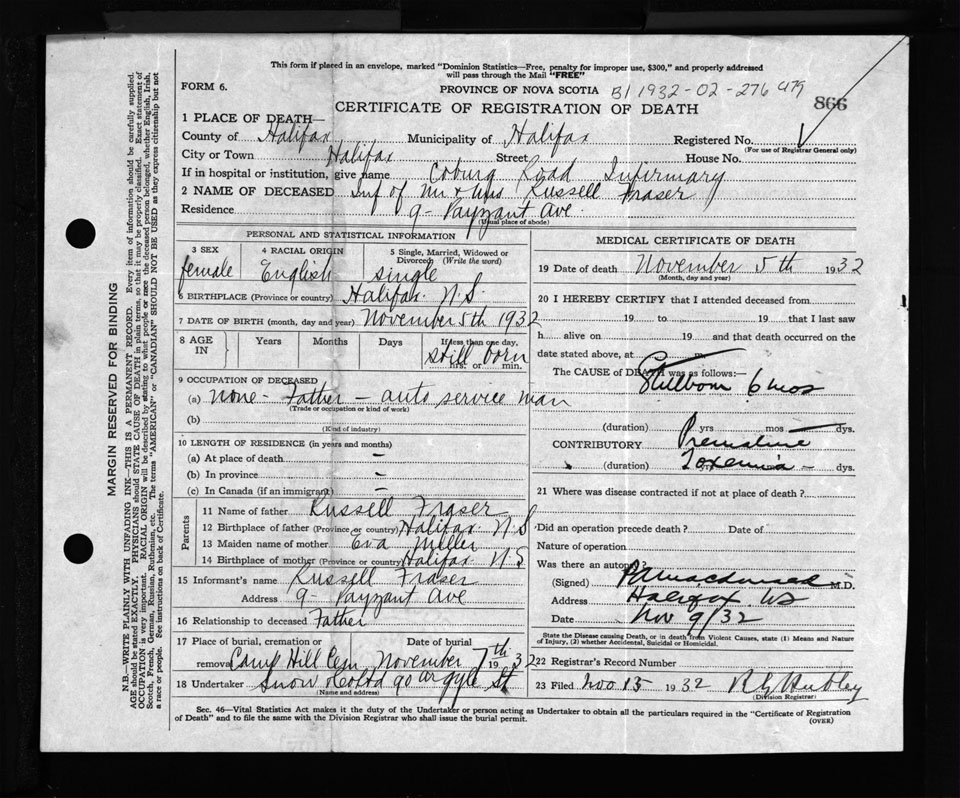 This form if placed in an envelope, marked "Dominion Statistics—Free, penalty for improper use, $300," and properly addressed
will pass through the Mail "FREE"
FORM 6.
PROVINCE OF NOVA SCOTIA B1 1932-02-276479
866
CERTIFICATE OF REGISTRATION OF DEATH
1 PLACE OF DEATH—
County of Halifax Municipality of Halifax Registered No.
(For use of Registrar General only)
City or Town Halifax Street House No.
If in hospital or institution, give name Coburg Road Infirmary
2 NAME OF DECEASED Inf of Mr & Mrs Russell Fraser
Residence 9- Payzant Ave.
(Usual place of abode)
PERSONAL AND STATISTICAL INFORMATION
3 SEX 4 RACIAL ORIGIN 5 Single, Married, Widowed or
Divorced (Write the word)
female English single
6 BIRTHPLACE (Province or country) Halifax. N.S.
7 DATE OF BIRTH (month, day and year) November 5th 1932
8 AGE IN Years Months Days If less than one day,
still born
hrs. or min.
9 OCCUPATION OF DECEASED
(a) none - Father - auto service man
(Trade or occupation or kind of work)
(b)
(Kind of industry)
10 LENGTH OF RESIDENCE (in years and months)
(a) At place of death –
(b) In province –
(c) In Canada (if an immigrant) –
Parents
11 Name of father Russell Fraser
12 Birthplace of father (Province or country) Halifax. N.S
13 Maiden name of mother Eva Miller
14 Birthplace of mother (Province or country) Halifax N.S
15 Informant's name Russell Fraser
Address 9- Payzant Ave
16 Relationship to deceased Father
17 Place of burial, cremation or Date of burial
removal Camp Hill Cem November 7th 1932
18 Undertaker Snow & Co Ltd 90 Argyle St
(Name and address)
MEDICAL CERTIFICATE OF DEATH
19 Date of death November 5th 1932
(Month, day and year)
20 I HEREBY CERTIFY that I attended deceased from
19 to 19 that I last saw
h alive on 19 and that death occurred on the
date stated above, at m.
The CAUSE OF DEATH was as follows:—
Stillborn 6 mos
(duration) yrs mos dys.
CONTRIBUTORY Premature
(duration) Toxemia – dys.
21 Where was disease contracted if not at place of death?
Did an operation precede death? Date of
Nature of operation
Was there an autopsy
(Signed) M.D.
Address Halifax NS
Date Nov 9/32
State the Disease causing Death, or in death from Violent Causes, state (1) Means and Nature
of Injury, (2) whether Accidental, Suicidal or Homicidal.
22 Registrar's Record Number
23 Filed Nov 15 1932
(Division Registrar)
Sec. 46—Vital Statistics Act makes it the duty of the Undertaker or person acting as Undertaker to obtain all the particulars required in the "Certificate of Registration
of Death" and to file the same with the Division Registrar who shall issue the burial permit.
(OVER)
MARGIN RESERVED FOR BINDING
N.B.—WRITE PLAINLY WITH UNFADING INK—THIS IS A PERMANENT RECORD. Every item of information should be carefully supplied.
AGE should be stated EXACTLY. PHYSICIANS should STATE CAUSE OF DEATH in plain terms, so that it may be properly classified. Exact statement of
OCCUPATION is very important. RACIAL ORIGIN will be described by stating to what people or race the deceased person belonged, whether English, Irish,
Scotch, French, German, Russian, Ruthenian, etc. The terms "AMERICAN" or "CANADIAN" SHOULD NOT BE USED as they express citizenship but not
a race or people. See instructions on back of Certificate.